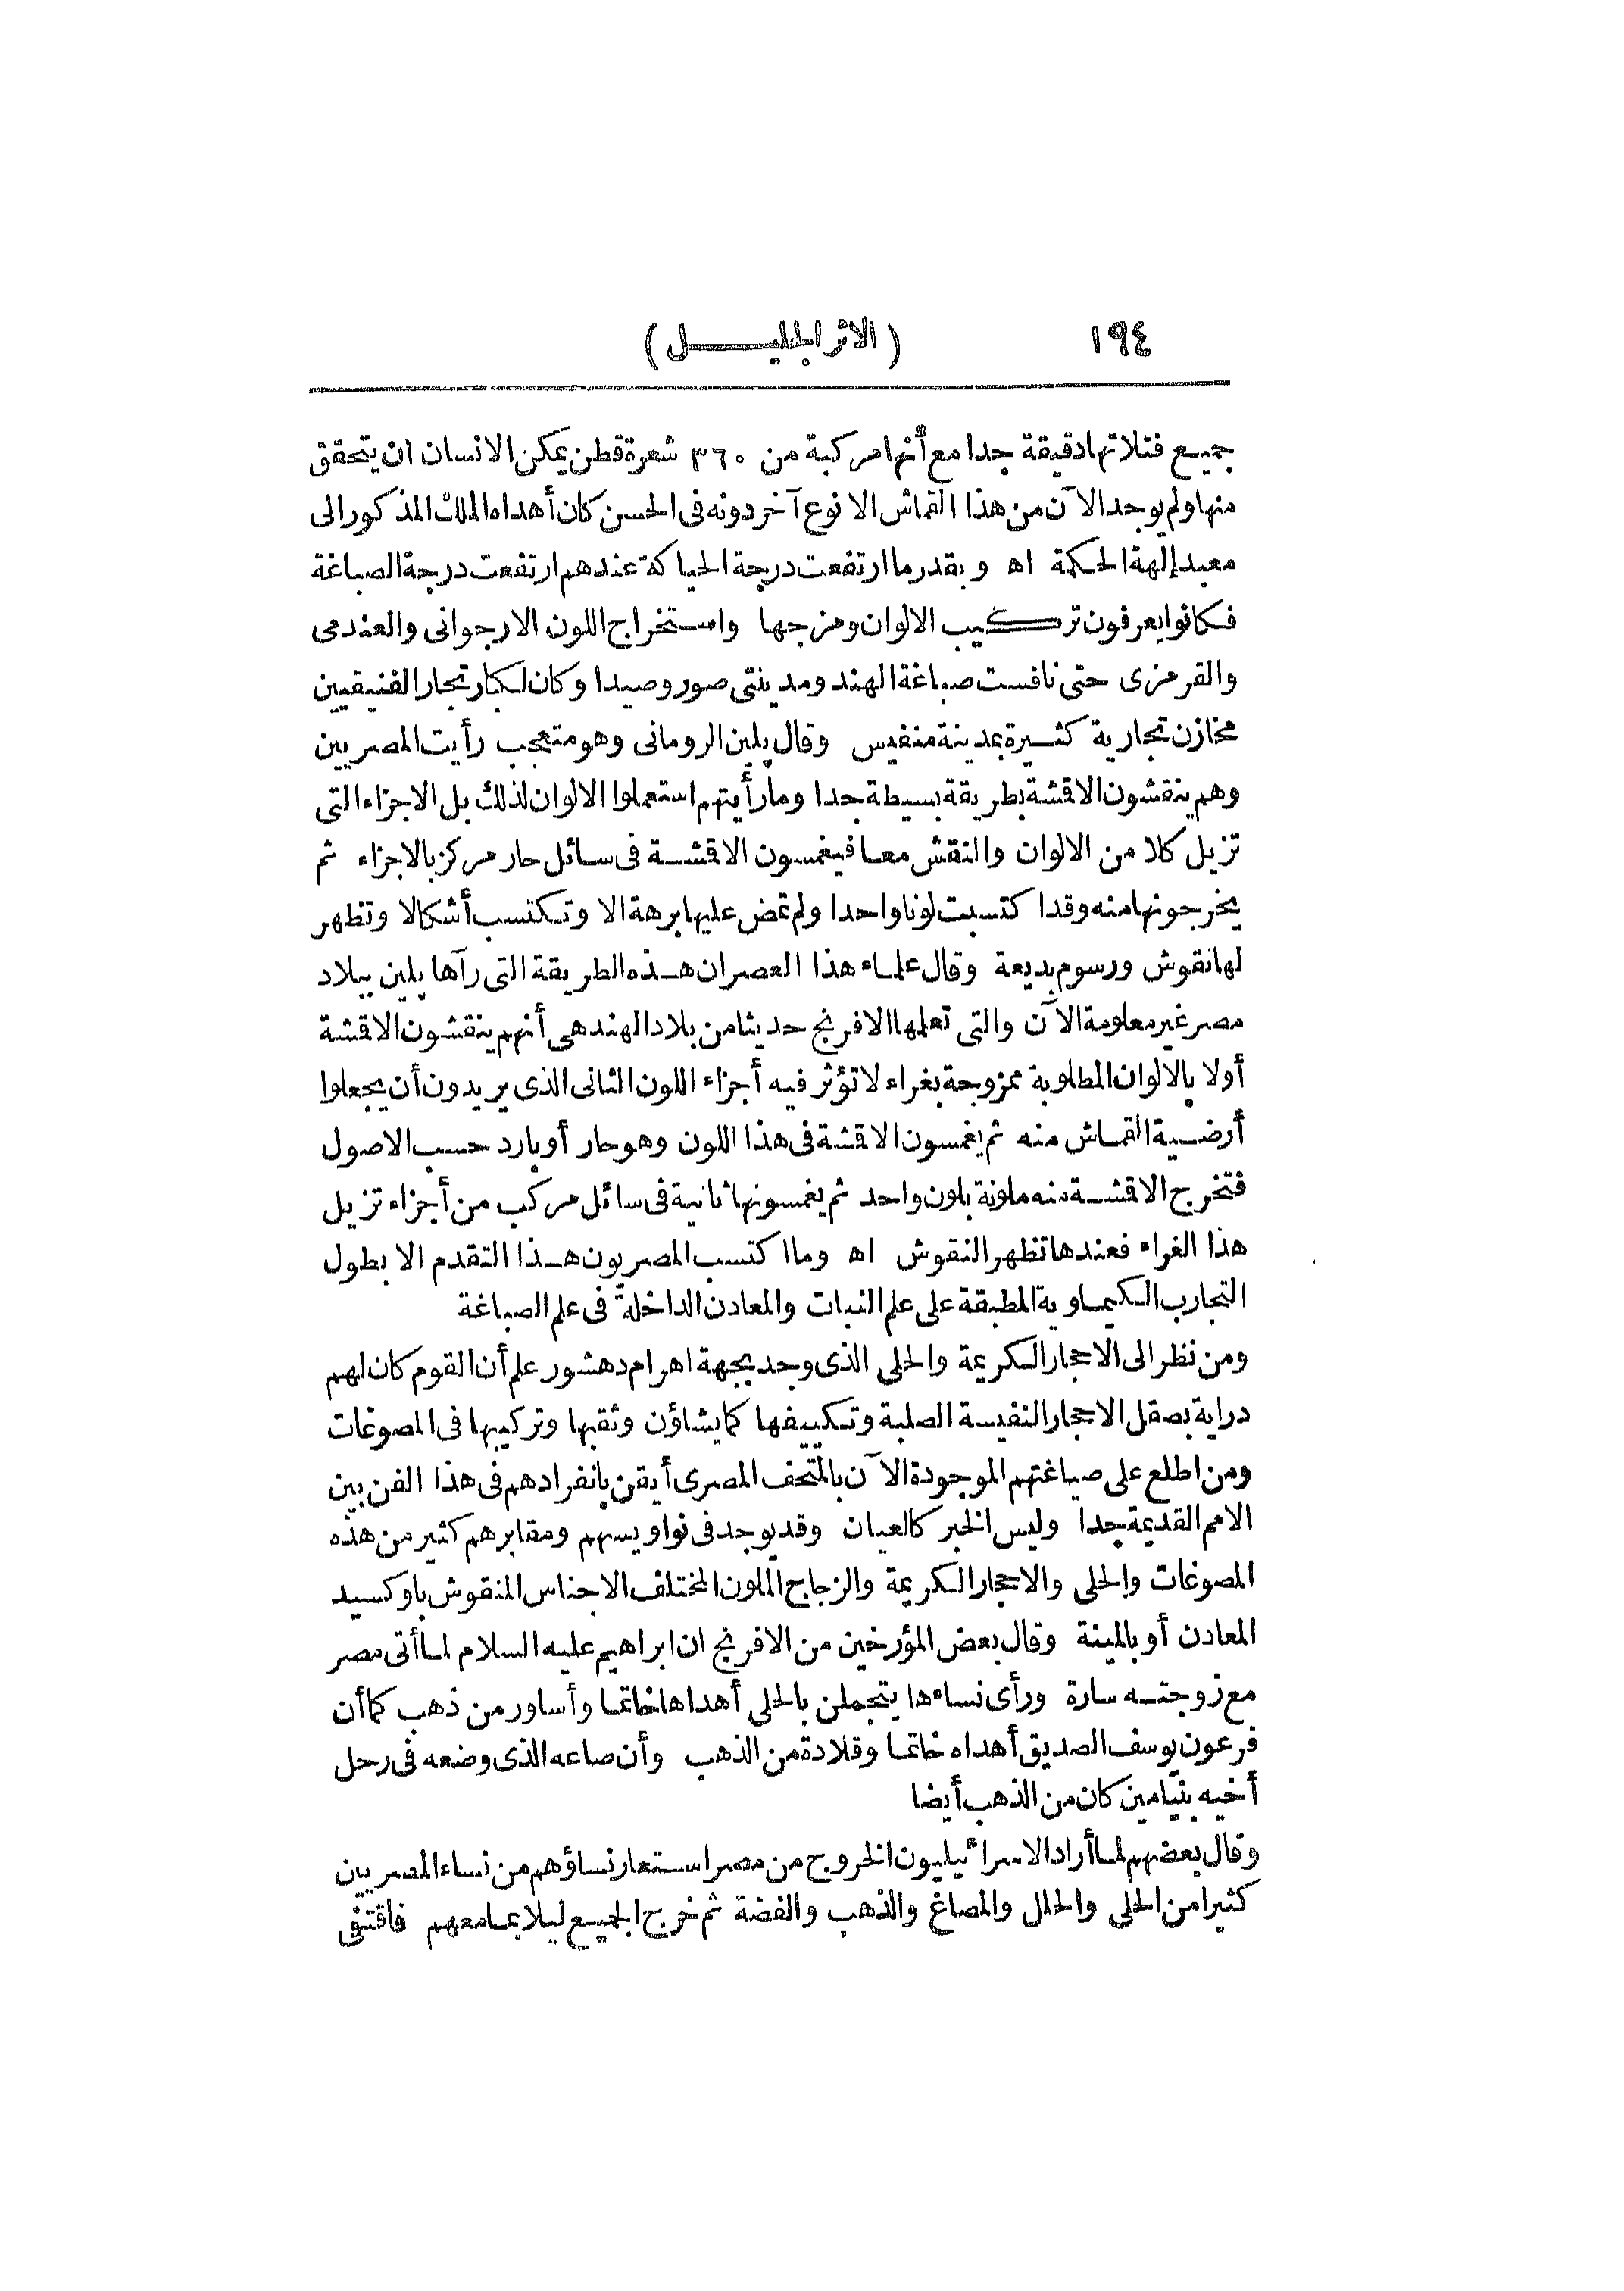 ١٩٤ (الاثر الجليل)
جميع فتلاتها دقيقة جدا مع أنها مركبة من ٣٦٠ شعرة قطن يمكن الانسان ان يتحقق
منها ولم يوجد الآن من هذا القماش الا نوع آخر دونه فى الحسن كان أهداه الملك المذكور الى
معبد إلهة الحكمة اه وبقدر ما ارتفعت درجة الحياكة عندهم ارتفعت درجة الصباغة
فكانوا يعرفون تركيب الالوان ومزجها واستخراج اللون الارجوانى والعندمى
والقرمزى حتى نافست صباغة الهند ومدينتى صور وصيدا وكان لكبار تجار الفنيقيين
مخازن تجارية كثيرة بمدينة منفيس وقال پلين الرومانى وهو متعجب رأيت المصريين
وهم ينقشون الاقشة بطريقة بسيطة جدا وما رأيتهم استعملوا الالوان لذلك بل الاجزاء التى
تزيل كلا من الالوان والنقش معا فيغمسون الاقشة فى سائل حار مركز بالاجزاء ثم
يخرجونها منه وقد اكتسبت لونا واحدا ولم تمض عليها برهة الا وتكتسب أشكالا وتظهر
لها نقوش ورسوم بديعة وقال علماء هذا العصر ان هذه الطريقة التى رآها پلين ببلاد
مصر غير معلومة الآن والتى تعلمها الافرنج حديثا من بلاد الهند هى أنهم ينقشون الاقشة
أولا بالالوان المطلوبة ممزوجة بغراء لا تؤثر فيه أجزاء اللون الثانى الذى يريدون أن يجعلوا
أرضية القماش منه ثم يغمسون الاقشة فى هذا اللون وهو حار أو بارد حسب الاصول
فتخرج الاقشة منه ملونة بلون واحد ثم يغمسونها ثانية فى سائل مركب من أجزاء تزيل
هذا الغراء فعندها تظهر النقوش اه وما اكتسب المصريون هذا التقدم الا بطول
التجارب الكيماوية المطبقة على علم النبات والمعادن الداخلة فى علم الصباغة
ومن نظر الى الاحجار الكريمة والحلى الذى وجد بجهة اهرام دهشور علم أن القوم كان لهم
دراية بصقل الاحجار النفيسة الصلبة وتكييفها كما يشاؤن وثقبها وتركيبها فى المصوغات
ومن اطلع على صياغتهم الموجودة الآن بالمتحف المصرى أيقن بانفرادهم فى هذا الفن بين
الامم القديمة جدا وليس الخبر كالعيان وقد يوجد فى نواويسهم ومقابرهم كثير من هذه
المصوغات والحلى والاحجار الكريمة والزجاج الملون المختلف الاجناس المنقوش باوكسيد
المعادن أو بالمينة وقال بعض المؤرخين من الافرنج ان ابراهيم عليه السلام لما أتى مصر
مع زوجته سارة ورأى نساءها يتجملن بالحلى أهداها خاتما وأساور من ذهب كما أن
فرعون يوسف الصديق أهداه خاتما وقلادة من الذهب وأن صاعه الذى وضعه فى رحل
أخيه بنيامين كان من الذهب أيضا
وقال بعضهم لما أراد الاسرائيليون الخروج من مصر استعار نساؤهم من نساء المصريين
كثيرا من الحلى والحلل والمصاغ والذهب والفضة ثم خرج الجميع ليلا بما معهم فاقتفى